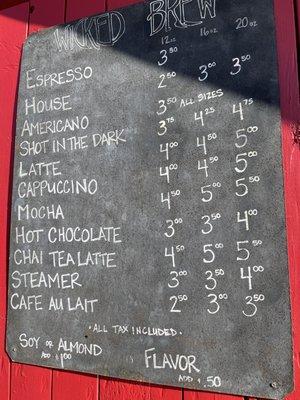 WICKED BREW
12oz 16oz 20oz
ESPRESSO 3.50
HOUSE 2.50 3.00 3.50
AMERICANO 3.50 ALL SIZES
SHOT IN THE DARK 3.75 4.25 4.75
LATTE 4.00 4.50 5.00
CAPPUCCINO 4.00 4.50 5.00
MOCHA 4.50 5.00 5.50
HOT CHOCOLATE 3.00 3.50 4.00
CHAI TEA LATTE 4.50 5.00 5.50
STEAMER 3.00 3.50 4.00
CAFE AU LAIT 2.50 3.00 3.50
• ALL TAX INCLUDED •
SOY OR ALMOND
ADD $1.00
FLAVOR
ADD $.50